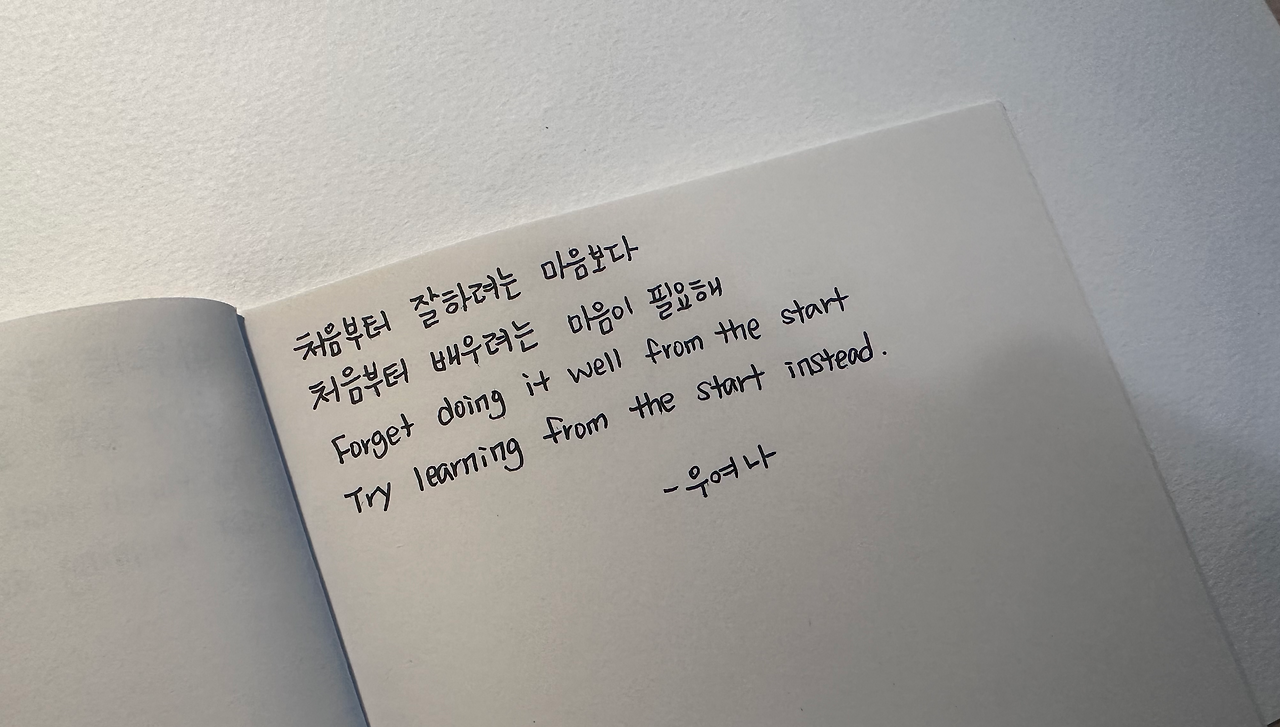 처음부터 잘하려는 마음보다
처음부터 배우려는 마음이 필요해
Forget doing it well from the start
Try learning from the start instead.
- 우여나